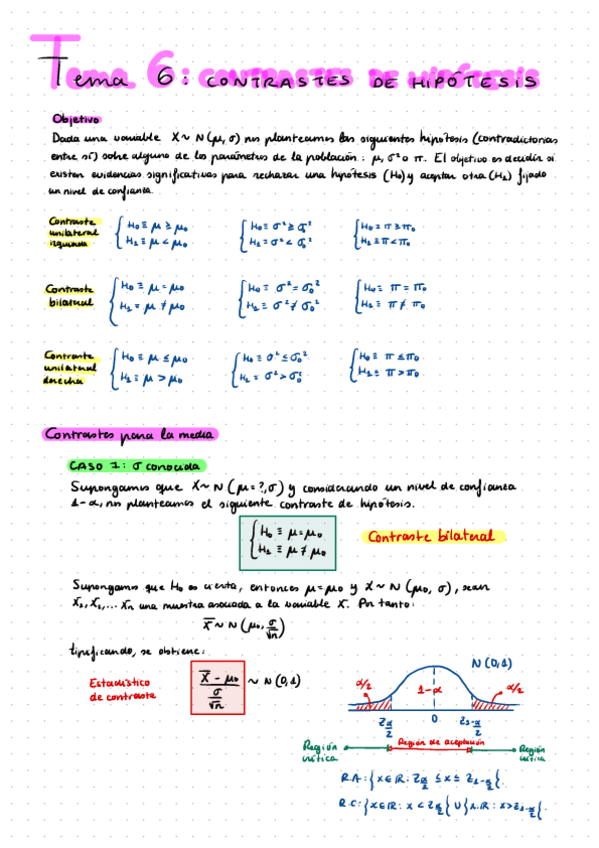 Tema 6: CONTRASTES DE HIPÓTESIS
Objetivo
Dada una variable X ~ N(μ, σ) nos planteamos las siguientes hipótesis (contradictorias
entre sí) sobre alguno de los parámetros de la población: μ, σ² o π. El objetivo es decidir si
existen evidencias significativas para rechazar una hipótesis (H₀) y aceptar otra (H₁) fijado
un nivel de confianza.
Contraste unilateral izquierda
H₀ ≡ μ ≥ μ₀ H₀ ≡ σ² ≥ σ₀² H₀ ≡ π ≥ π₀
H₁ ≡ μ < μ₀ H₁ = σ² < σ₀² H₁ ≡ π < π₀
Contraste bilateral
H₀ ≡ μ = μ₀ H₀ ≡ σ² = σ₀² H₀ ≡ π = π₀
H₁ = μ ≠ μ₀ H₁ ≡ σ² ≠ σ₀² H₁ ≡ π ≠ π₀
Contraste unilateral derecha
H₀ ≡ μ ≤ μ₀ H₀ ≡ σ² ≤ σ₀² H₀ ≡ π ≤ π₀
H₁ ≡ μ > μ₀ H₁ = σ² > σ₀² H₁ ≡ π > π₀
Contrastes para la media
CASO 1: σ conocida
Supongamos que X ~ N(μ = ?, σ) y considerando un nivel de confianza
1-α, nos planteamos el siguiente contraste de hipótesis.
H₀ ≡ μ = μ₀
H₁ ≡ μ ≠ μ₀
Contraste bilateral
Supongamos que H₀ es cierta, entonces μ = μ₀ y X ~ N(μ₀, σ), sean
X₁, X₂, ... Xn una muestra asociada a la variable X. Por tanto:
X̄ ~ N(μ₀, σ/√n)
tipificando, se obtiene:
Estadístico de contraste
(X̄ - μ₀)/(σ/√n) ~ N(0,1)
N(0,1)
α/2 1-α α/2
Zα/2 0 Z1-α/2
Región crítica Región de aceptación Región crítica
R.A: {x∈R: Zα/2 ≤ x ≤ Z1-α/2}.
R.C: {x∈R: x < Zα/2} U {x∈R: x > Z1-α/2}.